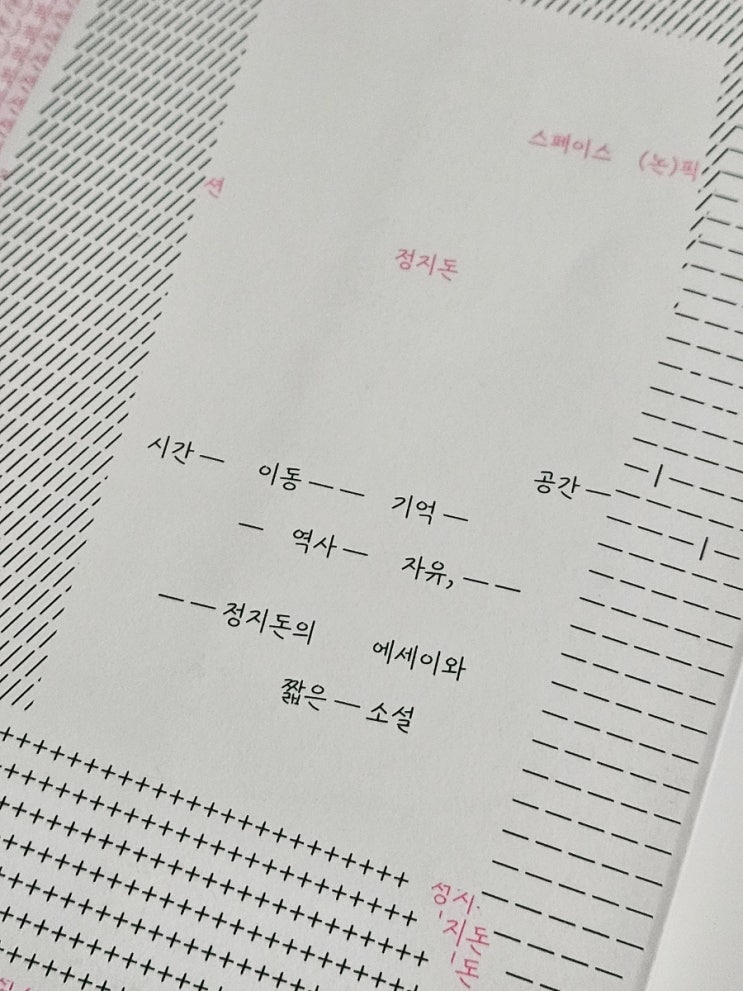 스페이스 (논)픽
션
정지돈
시간— 이동—— 기억— 공간—
— 역사— 자유,——
——정지돈의 에세이와
짧은—소설
지돈
돈